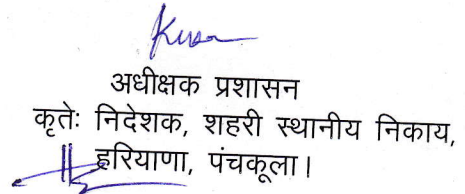 अधीक्षक प्रशासन
कृतेः निदेशक, शहरी स्थानीय निकाय,
हरियाणा, पंचकूला।